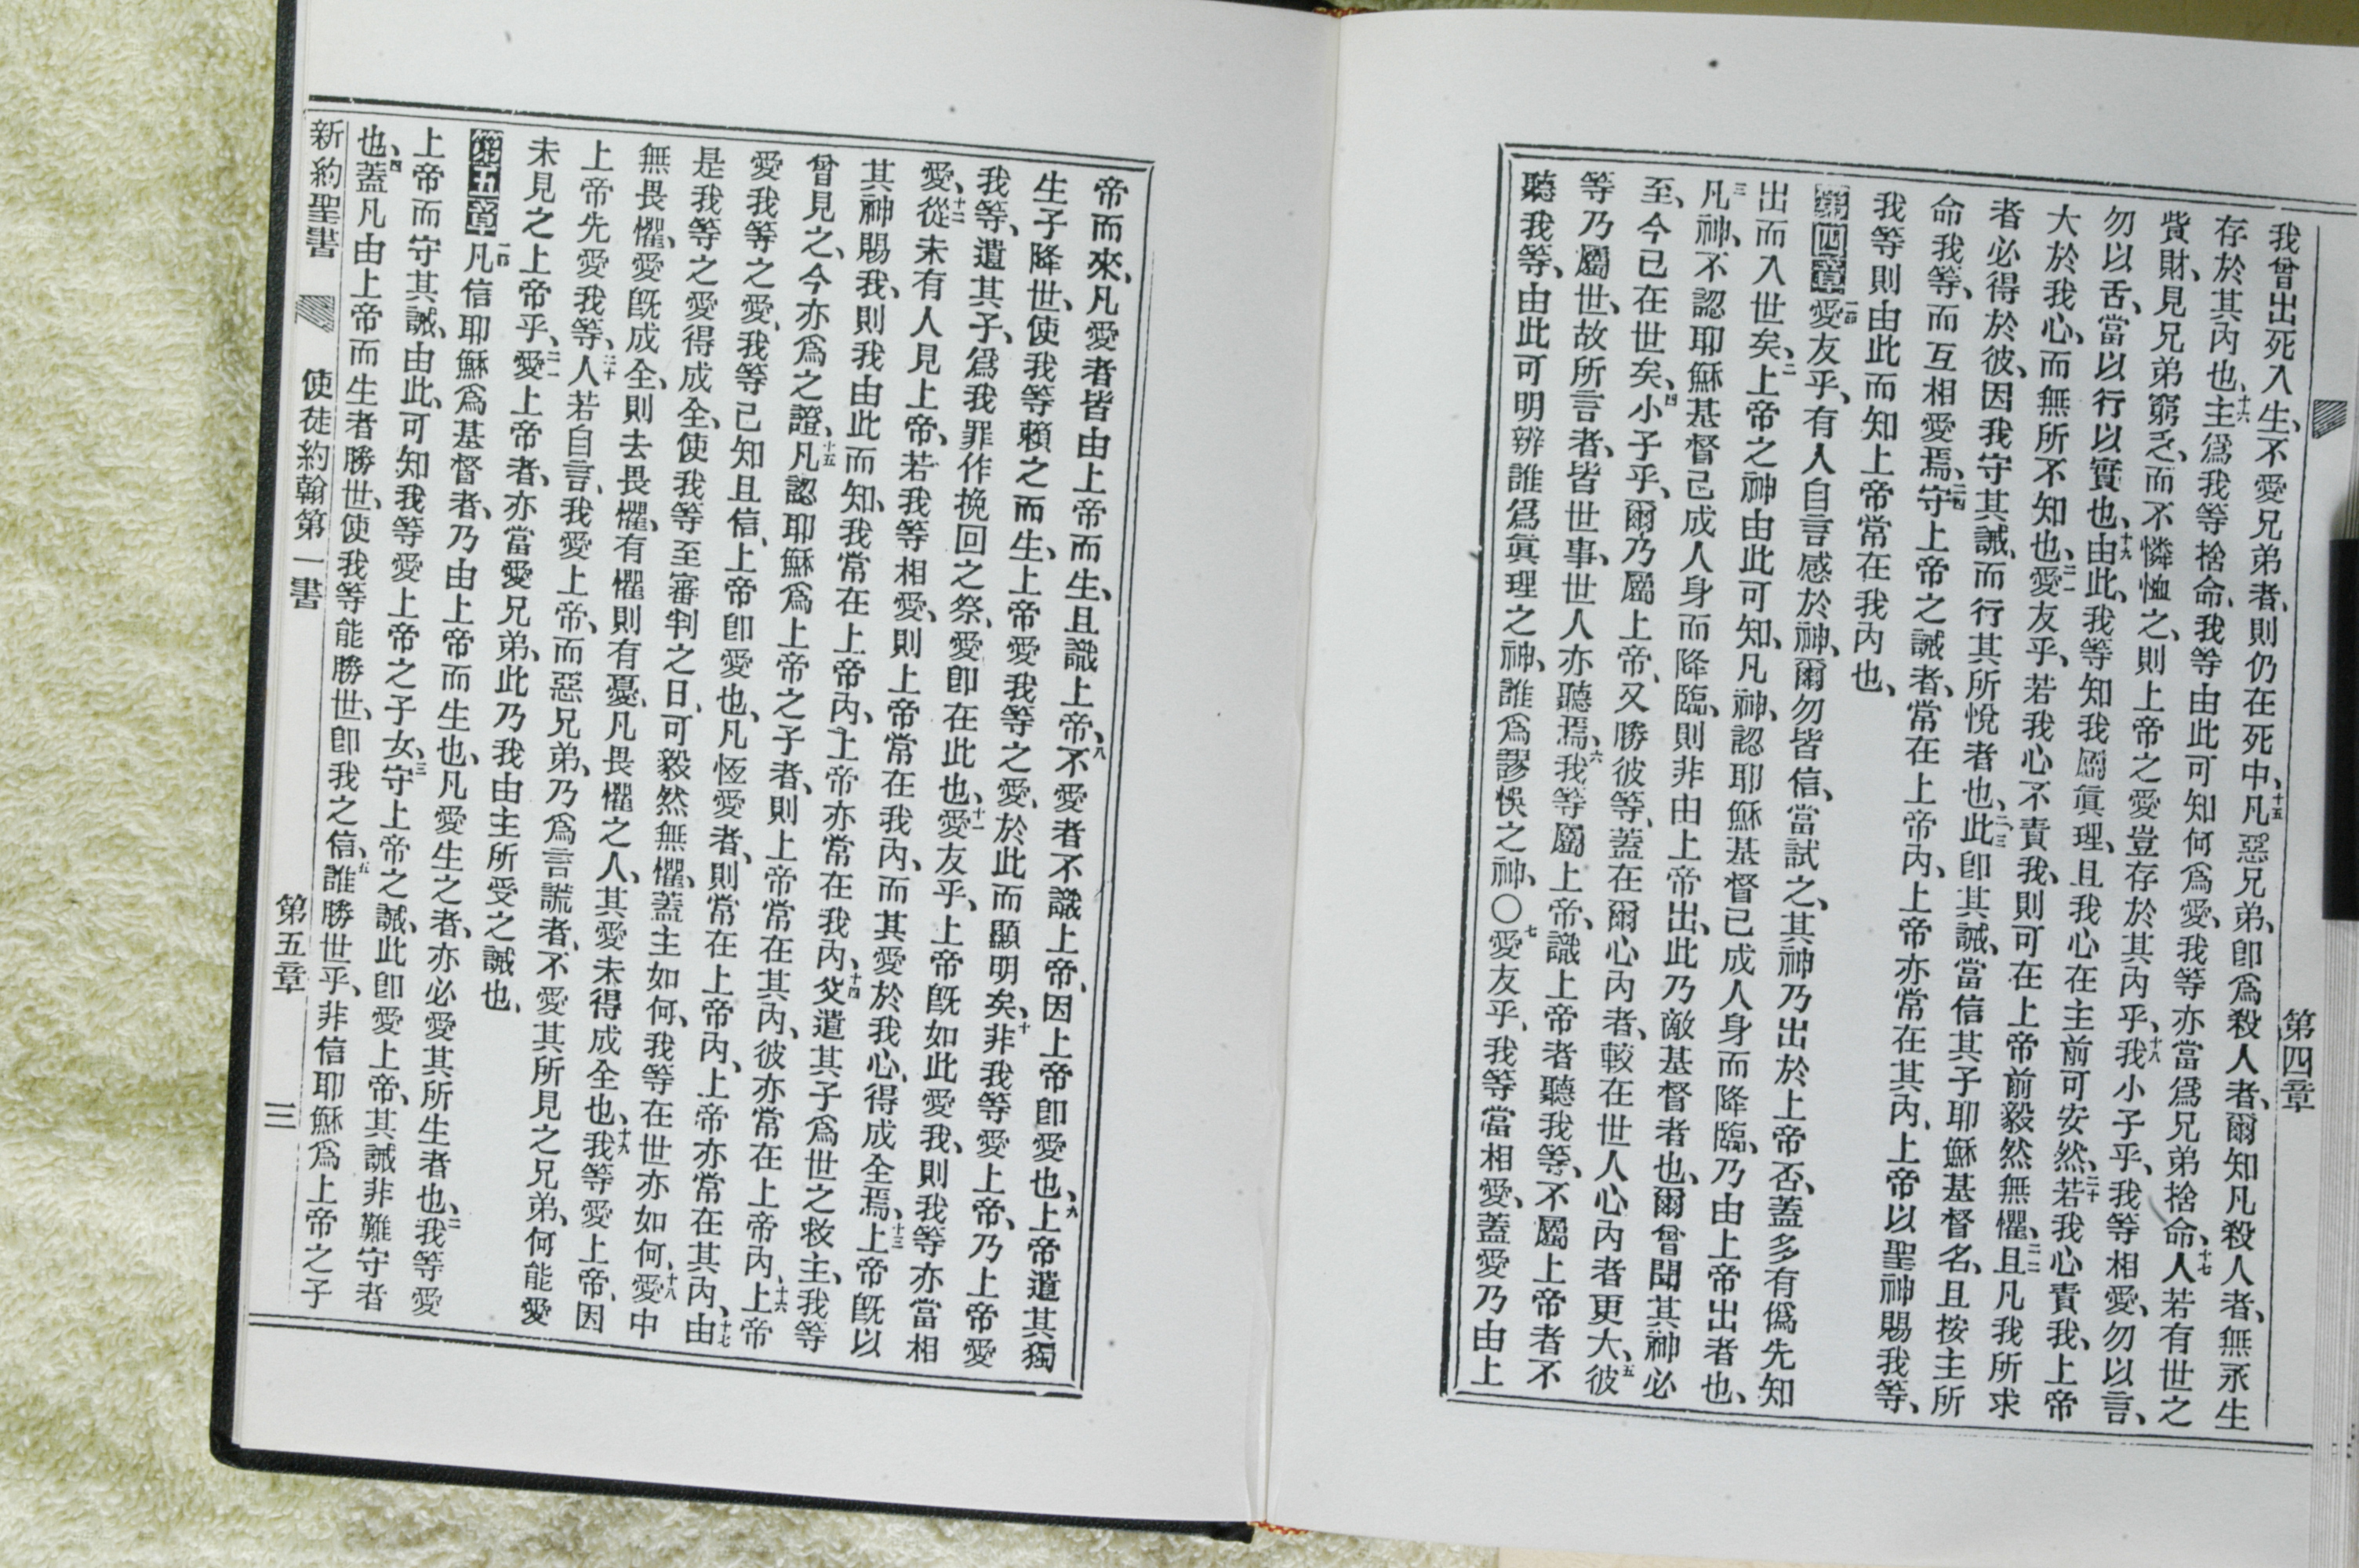 第四章
我曾出死入生、不愛兄弟者、則仍在死中、十五凡惡兄弟、卽爲殺人者、爾知凡殺人者、無永生
存於其內也、十六主爲我等捨命、我等由此可知何爲愛、我等亦當爲兄弟捨命、十七人若有世之
貲財、見兄弟窮乏、而不憐恤之、則上帝之愛豈存於其內乎、十八我小子乎、我等相愛、勿以言、
勿以舌、當以行以實也、十九由此、我等知我屬眞理、且我心在主前可安然、二十若我心責我、上帝
大於我心、而無所不知也、二一愛友乎、若我心不責我、則可在上帝前毅然無懼、二二且凡我所求
者必得於彼、因我守其誡、而行其所悅者也、二三此卽其誡、當信其子耶穌基督名、且按主所
命我等、而互相愛焉、二四守上帝之誡者、常在上帝內、上帝亦常在其內、上帝以聖神賜我等、
我等則由此而知上帝常在我內也、
第四章 一節愛友乎、有人自言感於神、爾勿皆信、當試之、其神乃出於上帝否、蓋多有僞先知
出而入世矣、二上帝之神由此可知、凡神、認耶穌基督已成人身而降臨、乃由上帝出者也、
三凡神、不認耶穌基督已成人身而降臨、則非由上帝出、此乃敵基督者也、爾曾聞其神必
至、今已在世矣、四小子乎、爾乃屬上帝、又勝彼等、蓋在爾心內者、較在世人心內者更大、五彼
等乃屬世、故所言者、皆世事、世人亦聽焉、六我等屬上帝、識上帝者聽我等、不屬上帝者不
聽我等、由此可明辨誰爲眞理之神、誰爲謬悞之神、〇七愛友乎、我等當相愛、蓋愛乃由上
帝而來、凡愛者皆由上帝而生、且識上帝、八不愛者不識上帝、因上帝卽愛也、九上帝遣其獨
生子降世、使我等賴之而生、上帝愛我等之愛、於此而顯明矣、十非我等愛上帝、乃上帝愛
我等、遣其子、爲我罪作挽回之祭、愛卽在此也、十一愛友乎、上帝旣如此愛我、則我等亦當相
愛、十二從未有人見上帝、若我等相愛、則上帝常在我內、而其愛於我心、得成全焉、十三上帝旣以
其神賜我、則我由此而知、我常在上帝內、上帝亦常在我內、十四父遣其子爲世之救主、我等
曾見之、今亦爲之證、十五凡認耶穌爲上帝之子者、則上帝常在其內、彼亦常在上帝內、十六上帝
愛我等之愛、我等已知且信、上帝卽愛也、凡恆愛者、則常在上帝內、上帝亦常在其內、十七由
是我等之愛得成全、使我等至審判之日、可毅然無懼、蓋主如何、我等在世亦如何、十八愛中
無畏懼、愛旣成全、則去畏懼、有懼則有憂、凡畏懼之人、其愛未得成全也、十九我等愛上帝、因
上帝先愛我等、二十人若自言、我愛上帝、而惡兄弟、乃爲言謊者、不愛其所見之兄弟、何能愛
未見之上帝乎、二一愛上帝者、亦當愛兄弟、此乃我由主所受之誡也、
第五章 一節凡信耶穌爲基督者、乃由上帝而生也、凡愛生之者、亦必愛其所生者也、二我等愛
上帝而守其誡、由此、可知我等愛上帝之子女、三守上帝之誡、此卽愛上帝、其誡非難守者
也、四蓋凡由上帝而生者勝世、使我等能勝世、卽我之信、五誰勝世乎、非信耶穌爲上帝之子
新約聖書 使徒約翰第一書 第五章 三